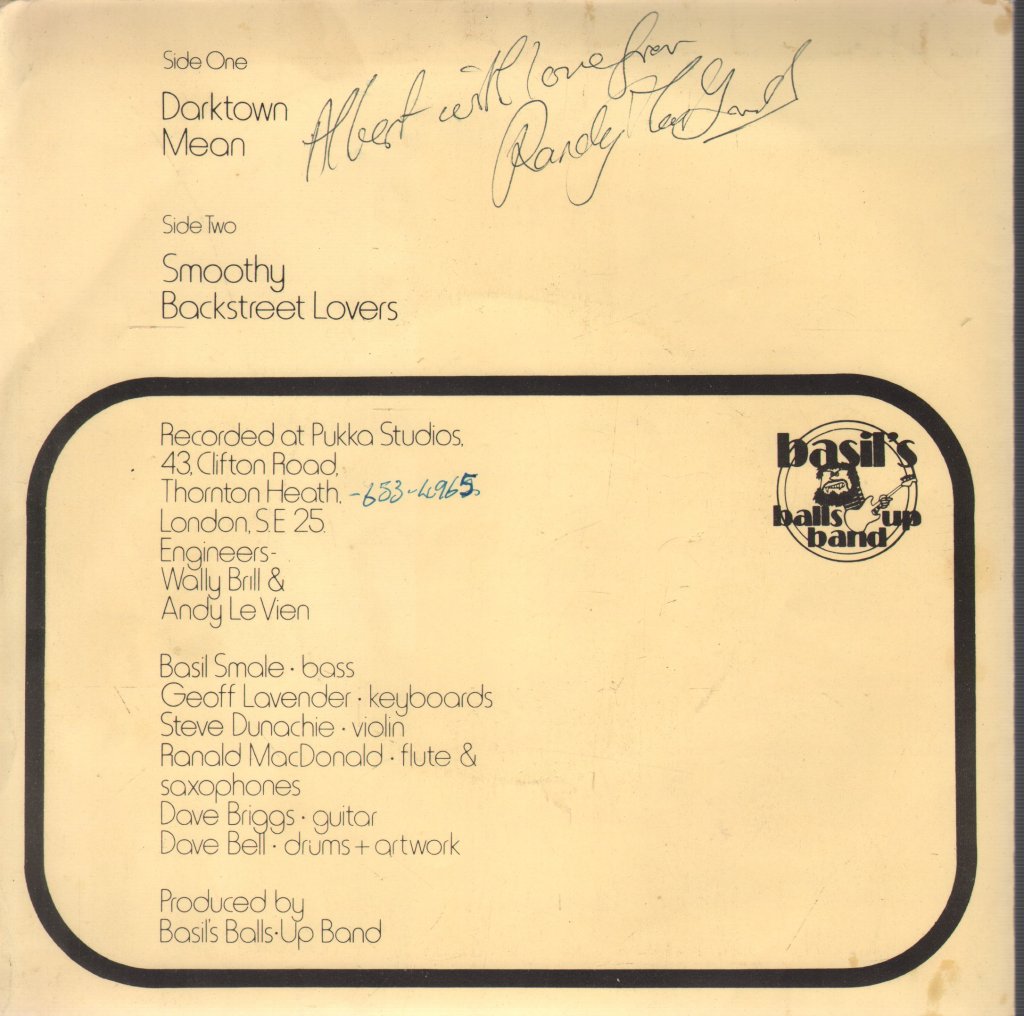 Side One
Darktown
Mean
Albert with love from
Randy
Side Two
Smoothy
Backstreet Lovers
Recorded at Pukka Studios,
43, Clifton Road,
Thornton Heath, -653-4965.
London, S.E 25.
Engineers-
Wally Brill &
Andy Le Vien
Basil Smale · bass
Geoff Lavender · keyboards
Steve Dunachie · violin
Ranald MacDonald · flute &
saxophones
Dave Briggs · guitar
Dave Bell · drums + artwork
Produced by
Basil's Balls·Up Band
basil's
balls up
band